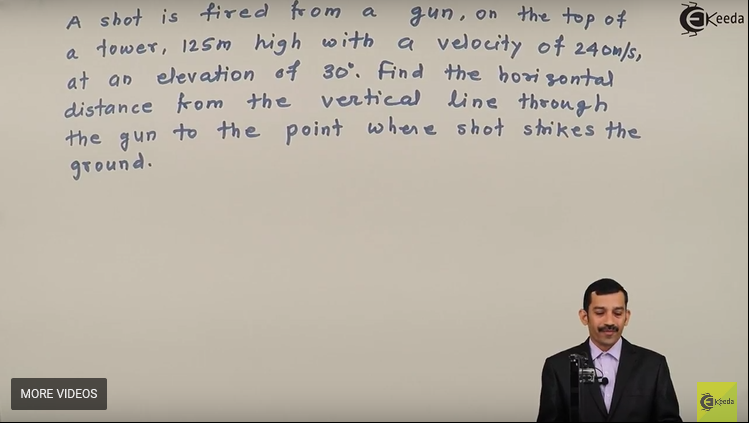 A shot is fired from a gun, on the top of
a tower, 125m high with a velocity of 240m/s,
at an elevation of 30°. Find the horizontal
distance from the vertical line through
the gun to the point where shot strikes the
ground.
EKeeda
MORE VIDEOS
EKeeda